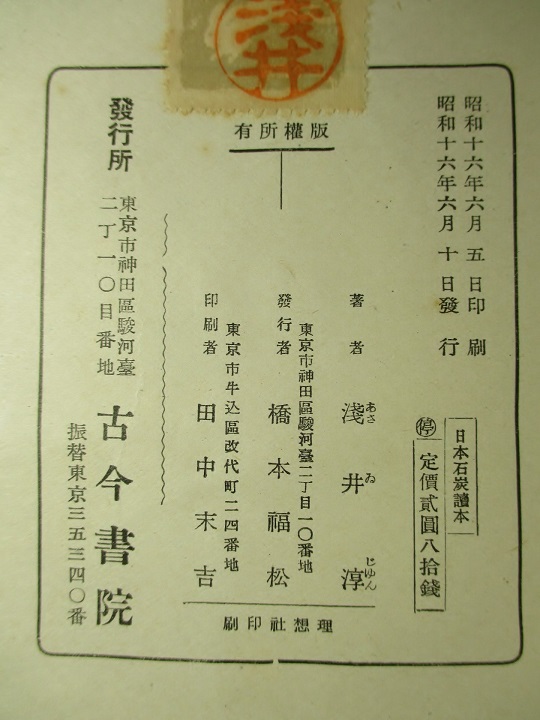 淺井
昭和十六年六月五日印刷
昭和十六年六月十日發行
日本石炭讀本
停 定價貳圓八拾錢
版權所有
著者 淺井淳
あさ ゐ じゆん
東京市神田區駿河臺二丁目一〇番地
發行者 橋本福松
東京市牛込區改代町二四番地
印刷者 田中末吉
理想社印刷
發行所
東京市神田區駿河臺
二丁目一〇番地
古今書院
振替東京三五三四〇番